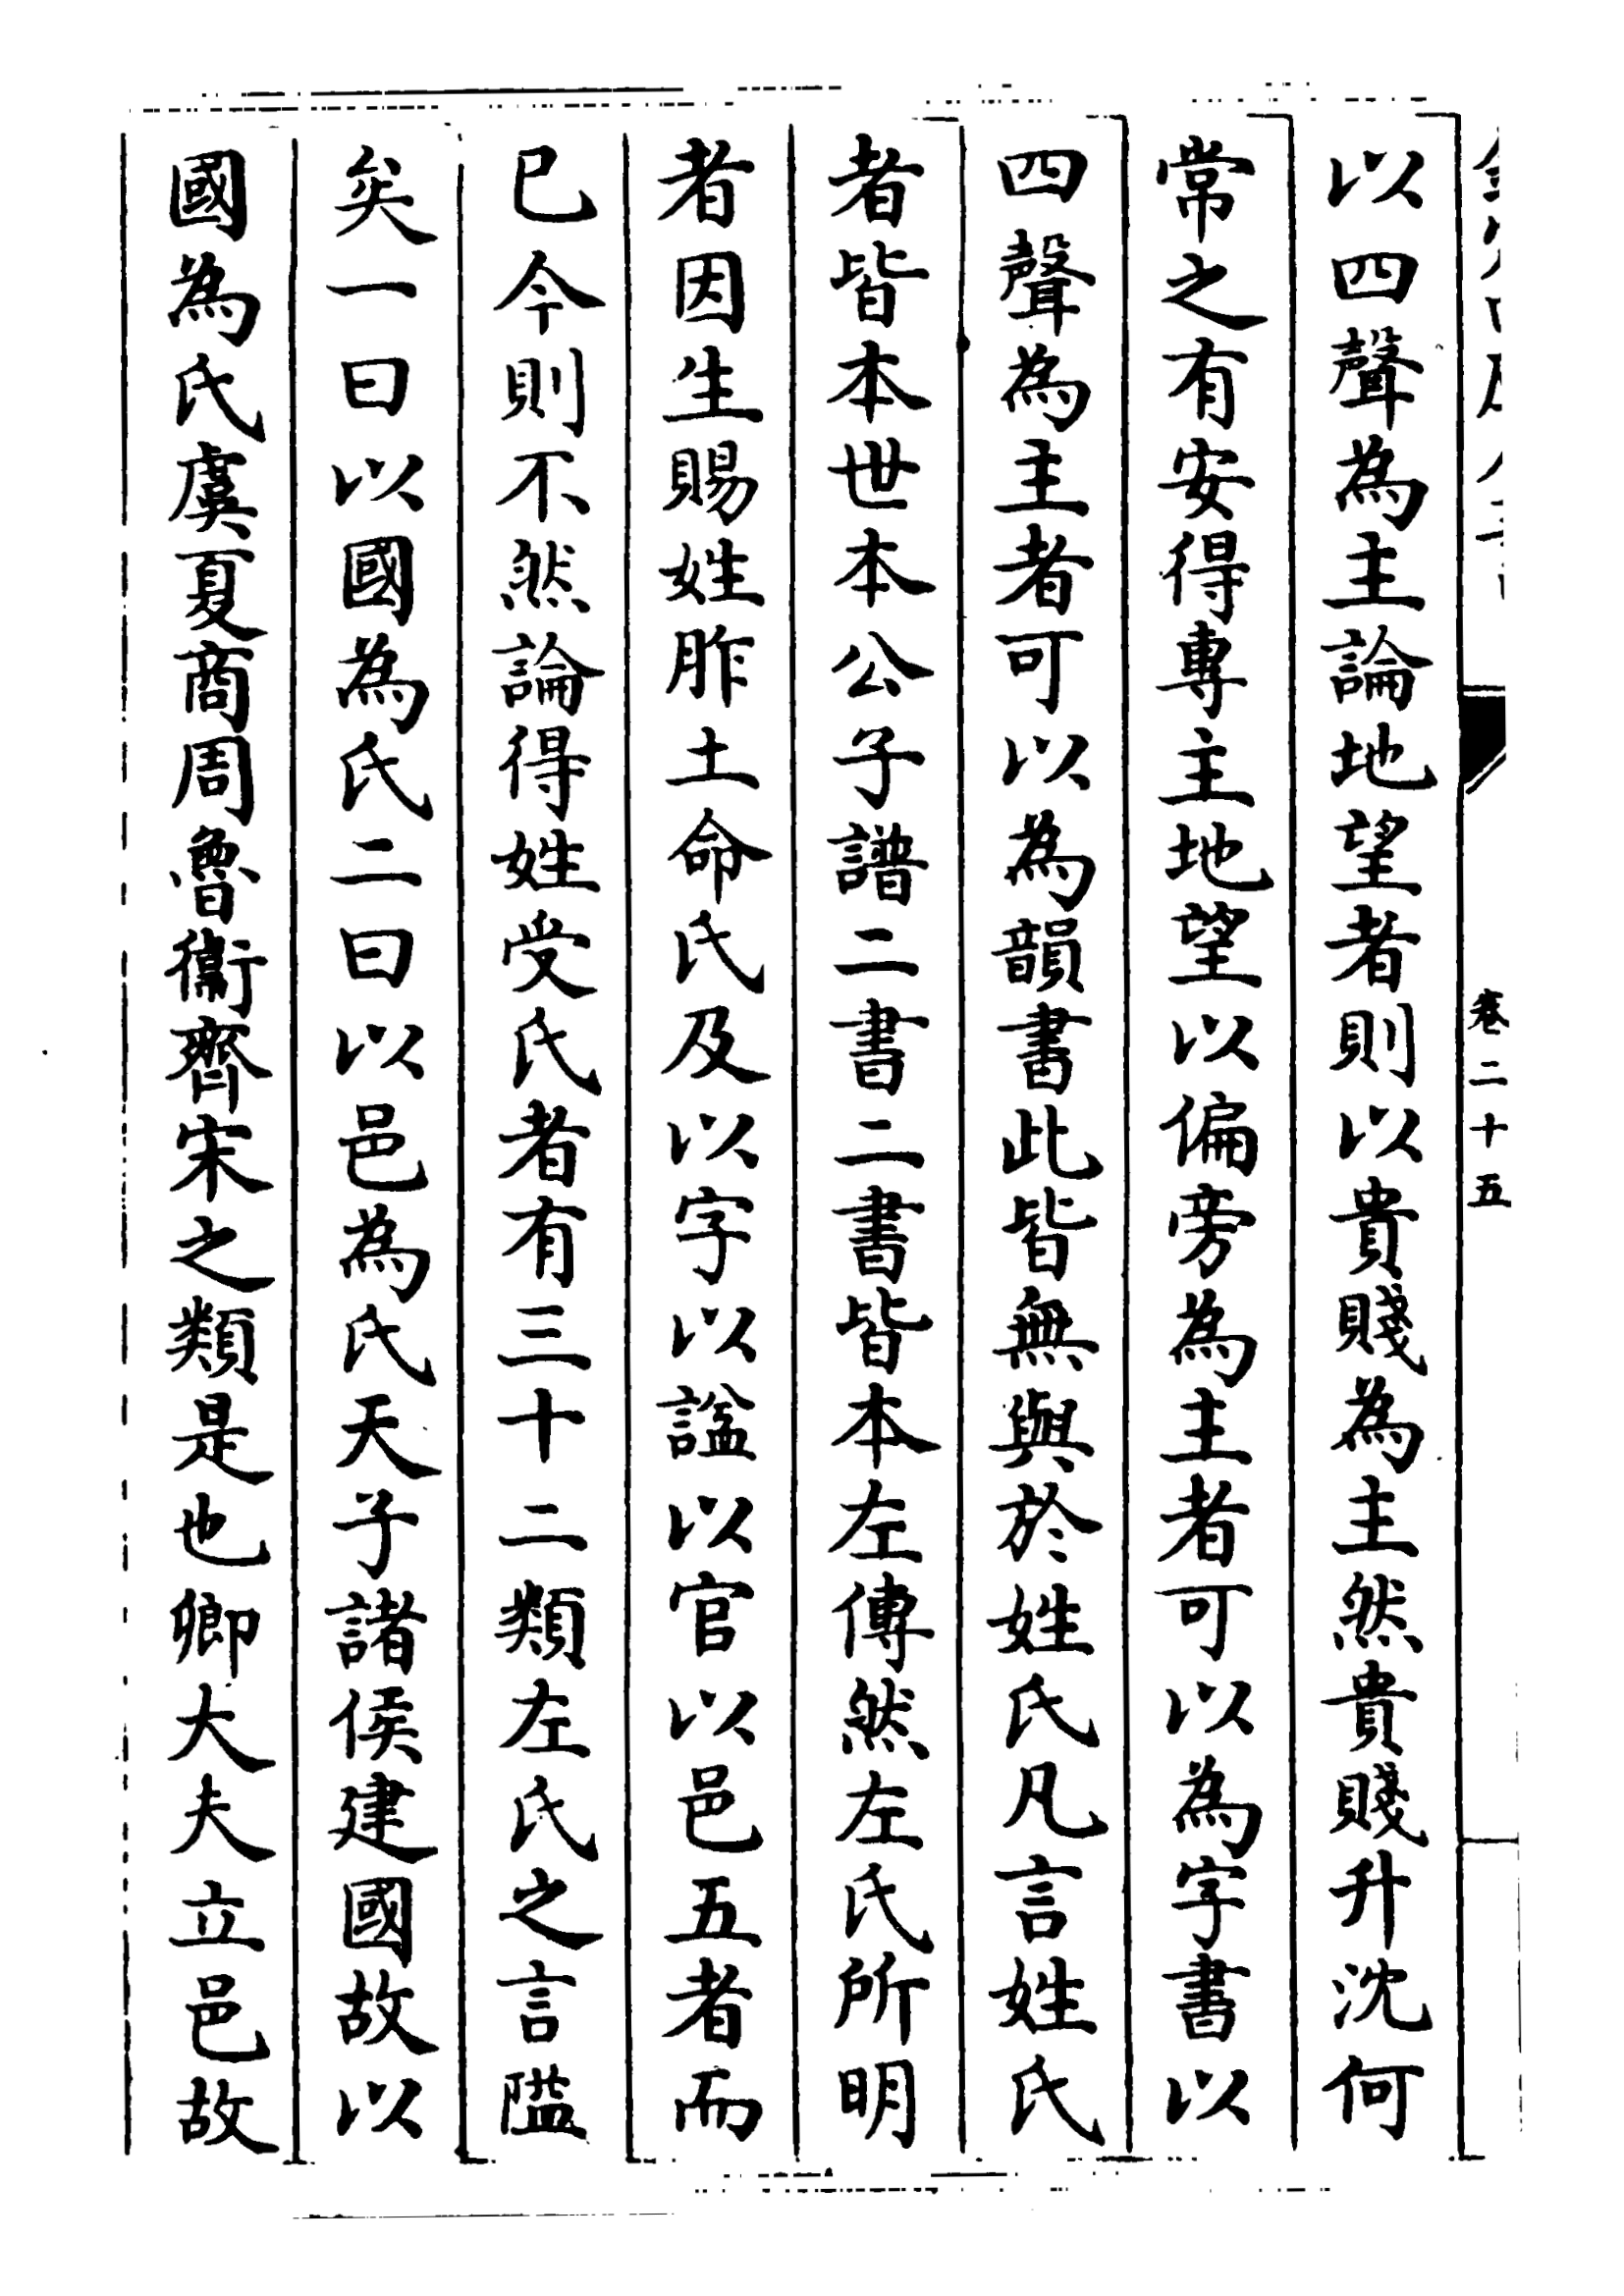 卷二十五
以四聲為主論地望者則以貴賤為主然貴賤升沈何
常之有安得專主地望以偏旁為主者可以為字書以
四聲為主者可以為韻書此皆無與於姓氏凡言姓氏
者皆本世本公子譜二書二書皆本左傳然左氏所明
者因生賜姓胙土命氏及以字以諡以官以邑五者而
已今則不然論得姓受氏者有三十二類左氏之言隘
矣一曰以國為氏二曰以邑為氏天子諸侯建國故以
國為氏虞夏商周魯衞齊宋之類是也卿大夫立邑故